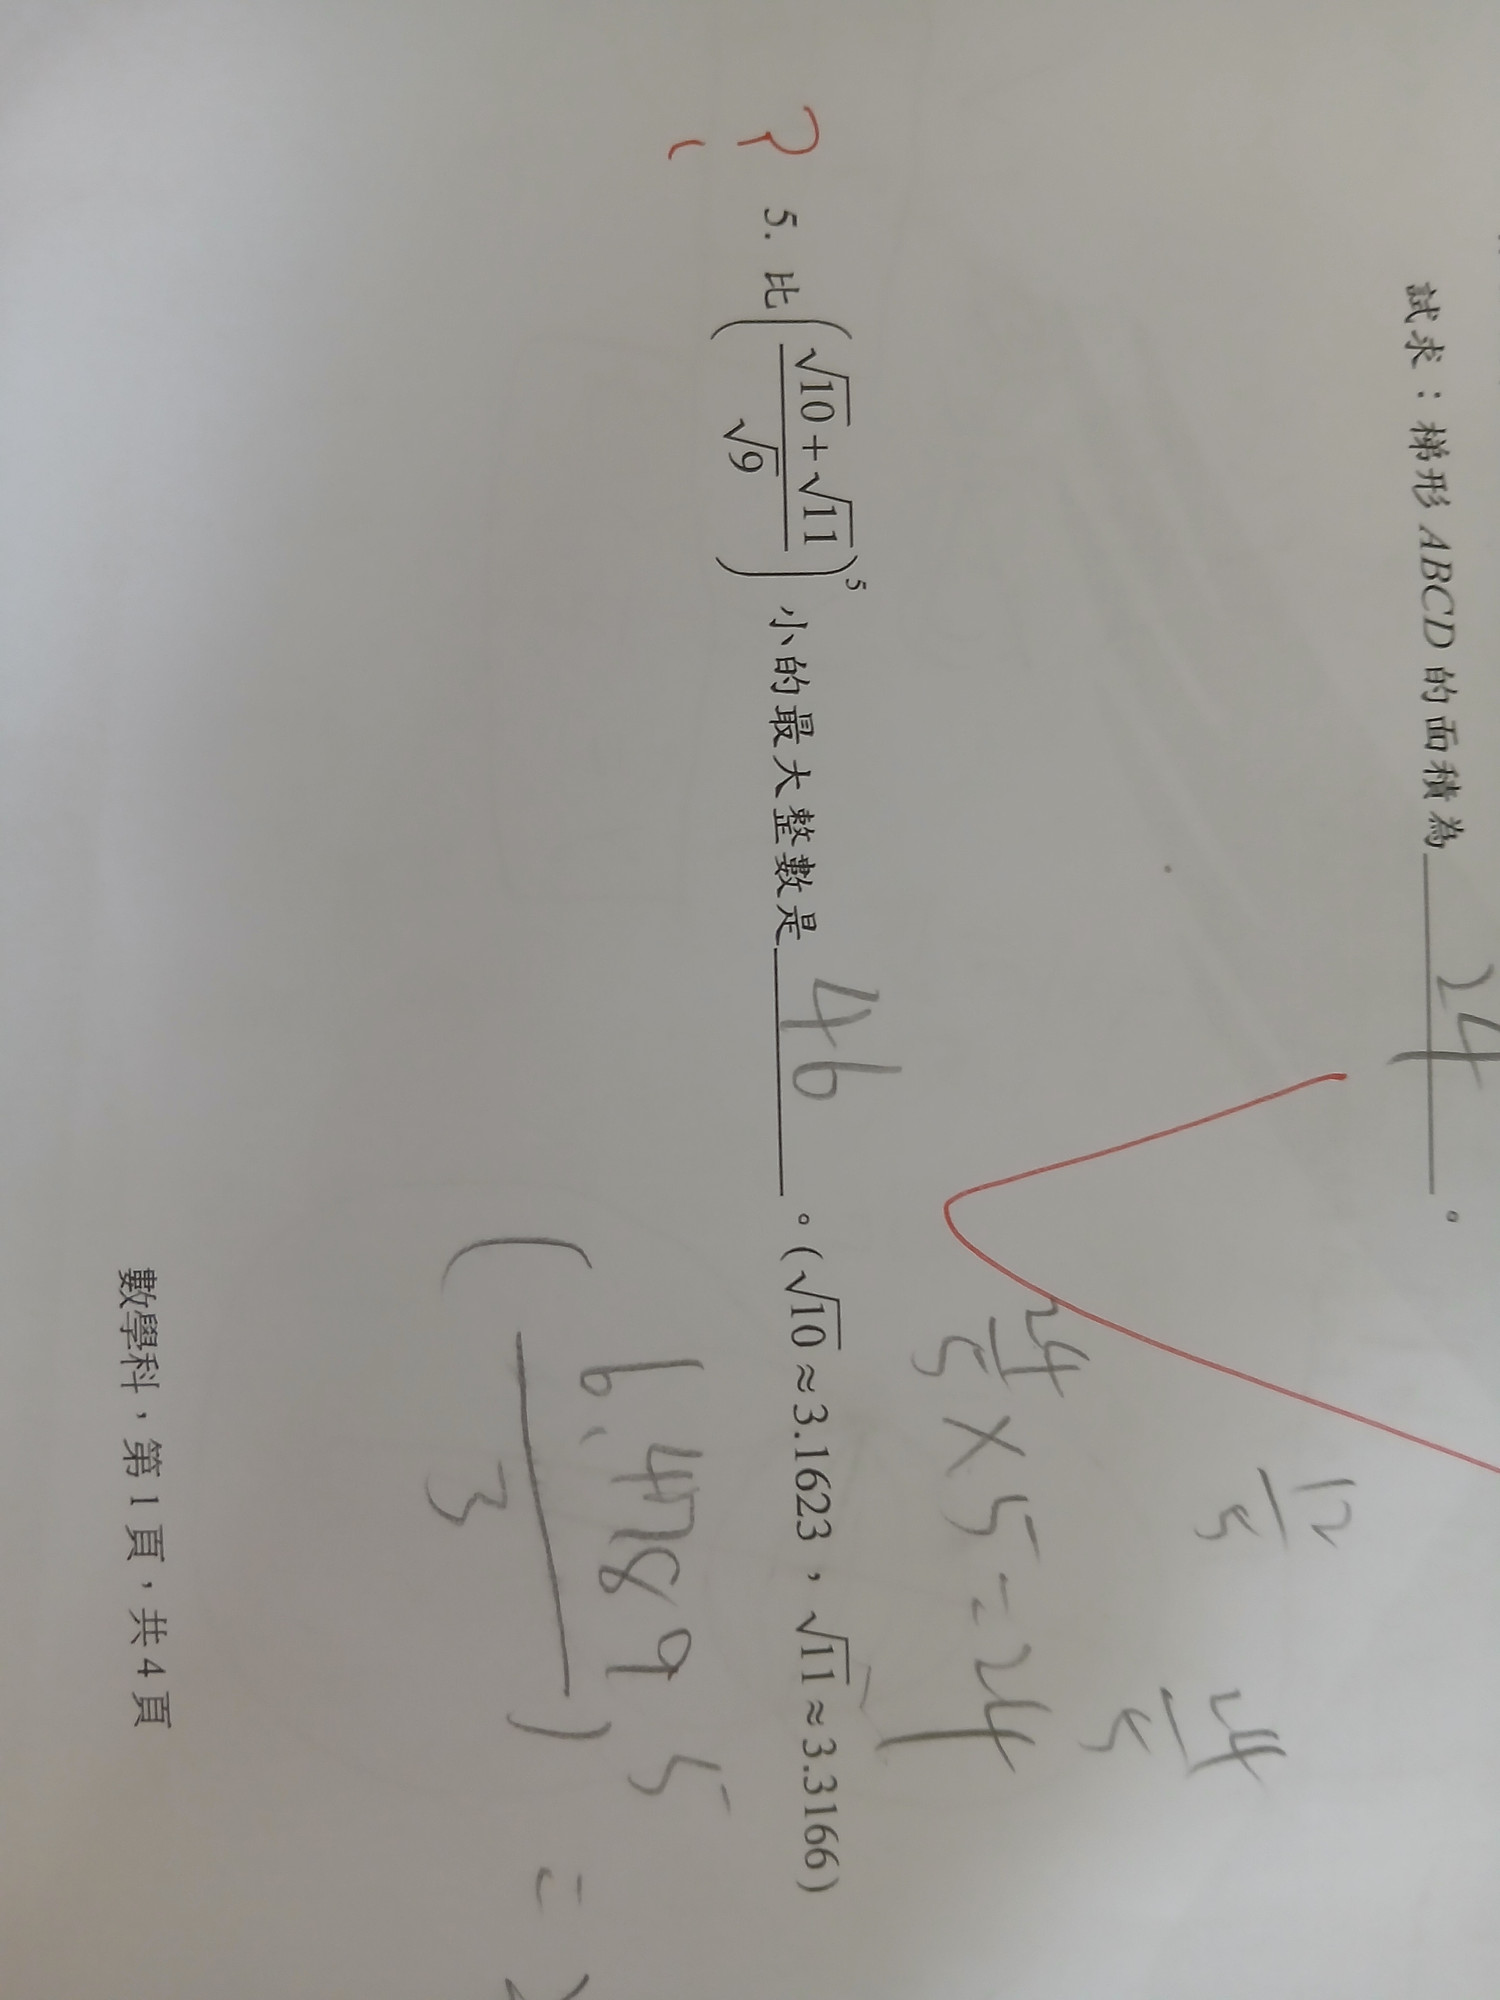 試求：梯形 ABCD 的面積為 24 。
12/5
24/5
24/5 × 5 = 24
? 5. 比 ((√10 + √11)/√9)^5 小的最大整數是 46 。(√10 ≈ 3.1623，√11 ≈ 3.3166)
(6.4789/3)^5 =
數學科，第 1 頁，共 4 頁